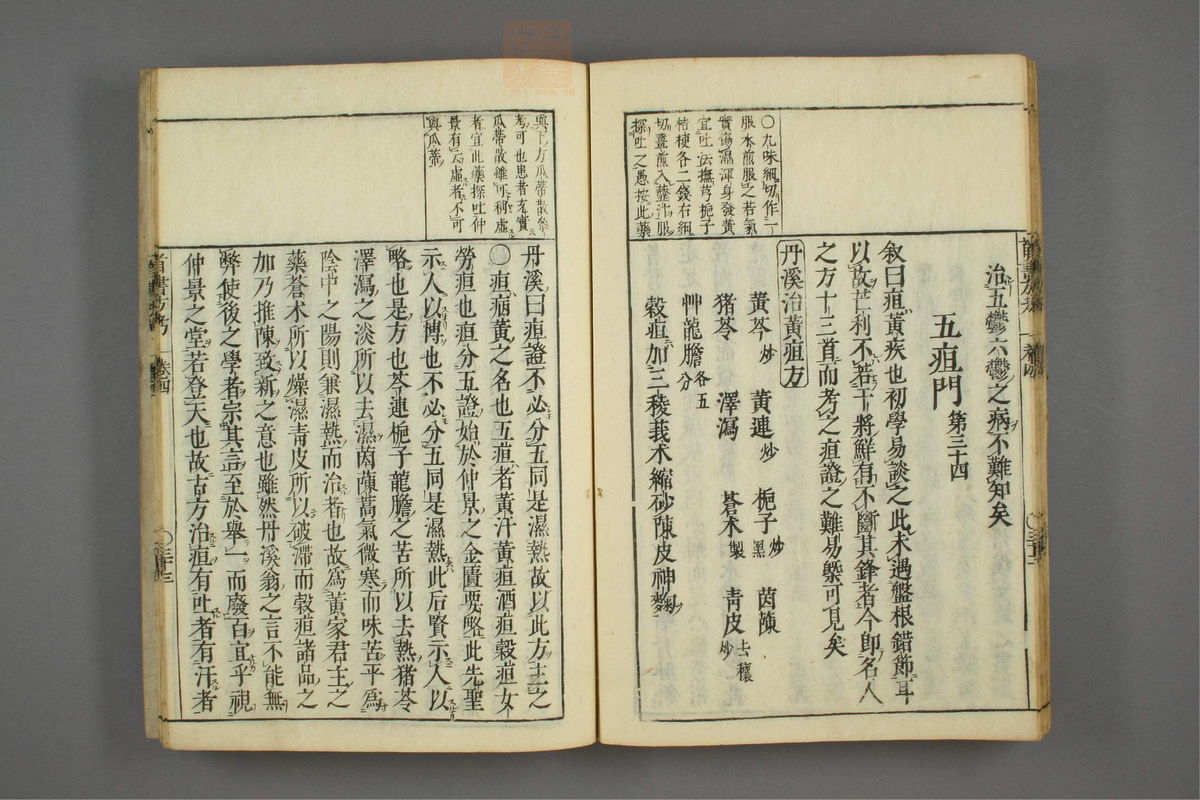 〇九味細切作一
服水煎服之若氣
實傷濕渾身發黃
宜吐法撫芎梔子
桔梗各二錢右細
切薑煎入虀汁服
探吐之愚按此藥
治五鬱六鬱之病不難知矣
五疸門第三十四
叙曰疸黃疾也初學易談之此未遇盤根錯節耳
以故芒利不若干將鮮有不斷其鋒者今卽名人
之方十三首而考之疸證之難易槩可見矣
丹溪治黃疸方
黃芩炒 黃連炒 梔子炒黑 茵蔯
猪苓 澤瀉 蒼术製 靑皮去穰炒
艸龍膽各五分
穀疸加三稜莪术縮砂陳皮神麴
與下方瓜蒂散叅
考可也患者充實
瓜蒂散雖可稱虛
者宜此藥探吐仲
景有云虛者不可
與瓜蒂
丹溪曰疸證不必分五同是濕熱故以此方主之
〇疸病黃之名也五疸者黃汗黃疸酒疸穀疸女
勞疸也疸分五證始於仲景之金匱要略此先聖
示人以博也不必分五同是濕熱此后賢示人以
略也是方也芩連梔子龍膽之苦所以去熱猪苓
澤瀉之淡所以去濕茵蔯蒿氣微寒而味苦平爲
陰中之陽則兼濕熱而治者也故爲黃家君主之
藥蒼术所以燥濕靑皮所以破滯而穀疸諸品之
加乃推陳致新之意也雖然丹溪翁之言不能無
弊使後之學者宗其言至於舉一而廢百宜乎視
仲景之堂若登天也故古方治疸有吐者有汗者
卷四